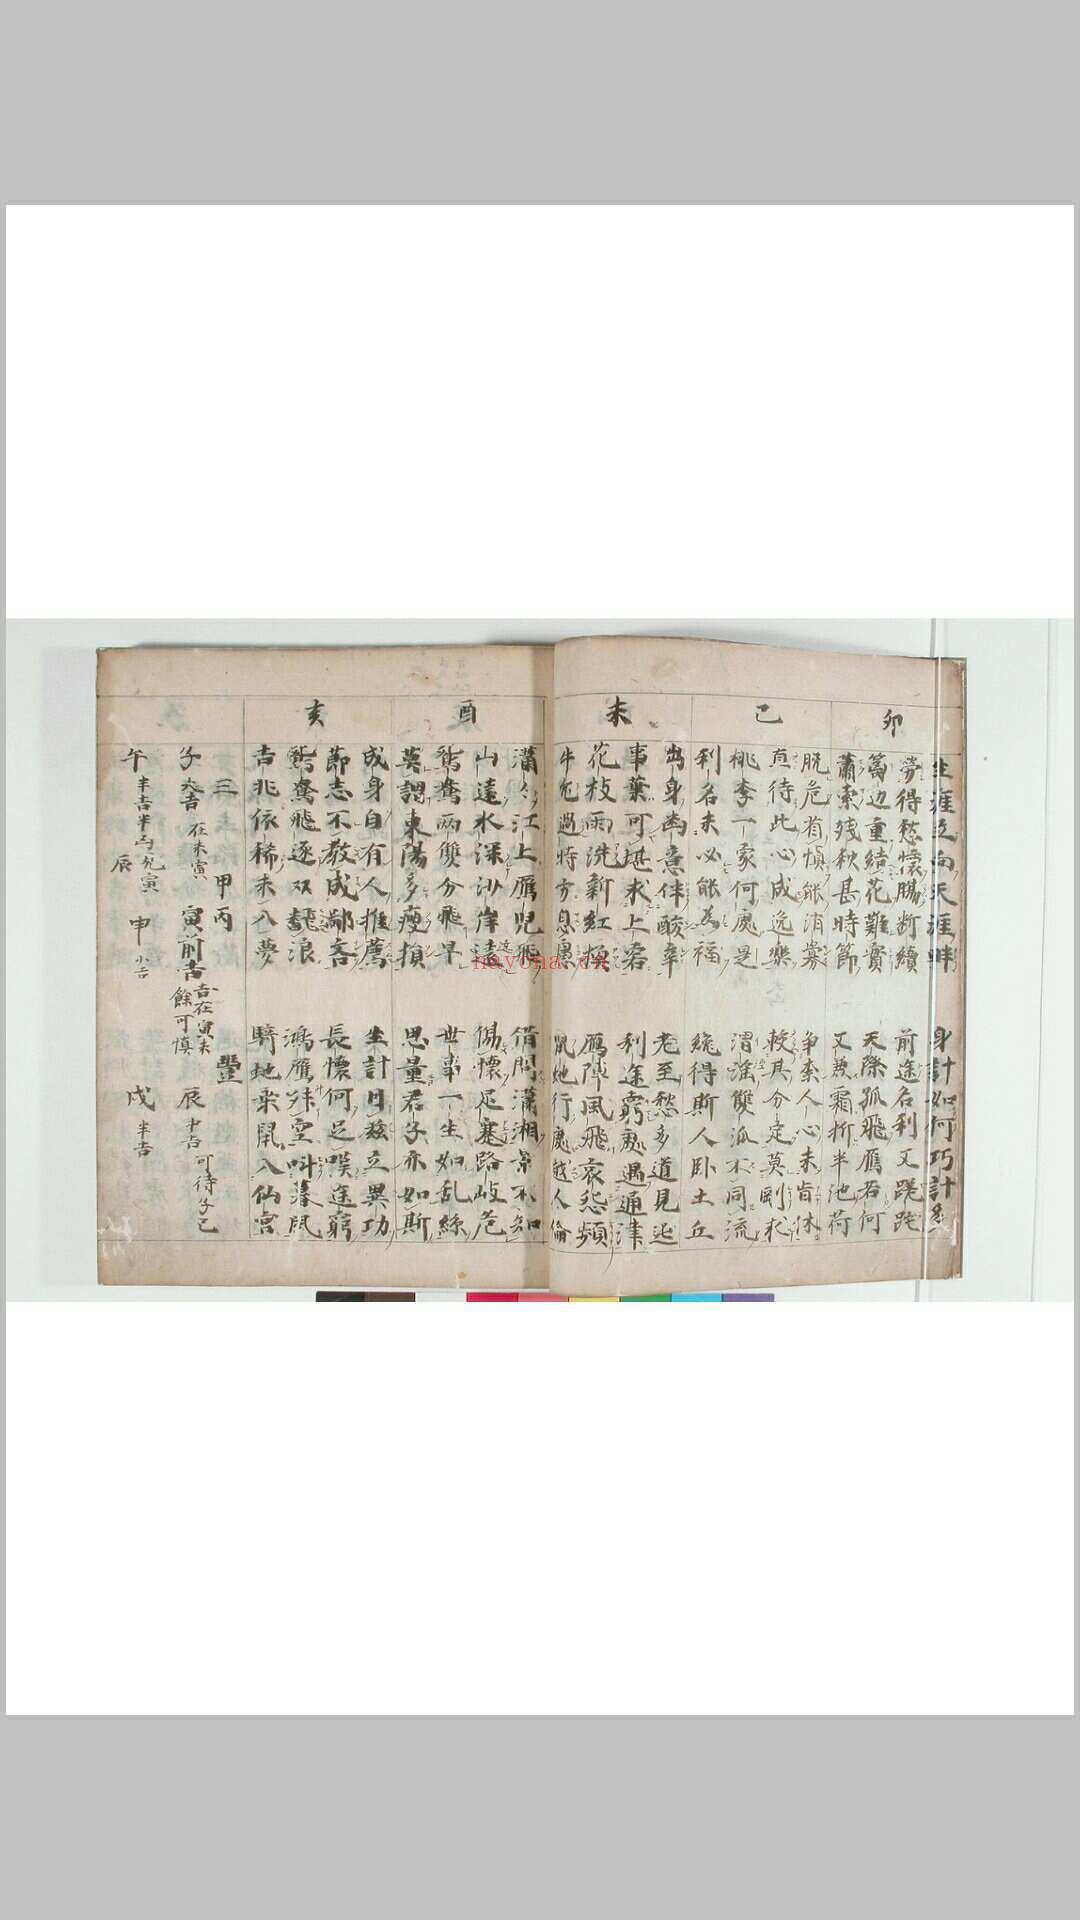 卯
生涯立向天涯畔
身計如何巧計
労得愁懐腸断續
前途名利又蹉跎
篱辺重結花難實
天際孤飛雁若何
蕭索残秋甚時節
又兼霜折半池荷
巳
脱危有慎能消
争奈人心未肯休
直待此心成逸樂
較其分定莫剛求
桃李一家何處是
渭涇雙派不同流
利名未必能為福
纔得斯人卧土丘
未
出身出意伴酸辛
老至愁多道見迍
事業可堪求上
利途窮處遇通津
花枝雨洗新紅損
雁陣風飛哀怨頻
牛
鼠地行處越人倫
酉
瀟々江上雁児飛
借問瀟湘景不知
山遠水深沙岸遠
傷懐足塞路岐危
鴛鴦両雙分飛早
世事一生如乱絲
莫謂東陽多瘦損
思量君子亦如斯
亥
成身自有人推薦
生計自茲立異功
節志不教成鄙吝
長懐何足嘆途窮
鴛鴦飛逐双翻浪
鴻雁寒空叫暮風
吉兆依稀未入夢
騎地乗鼠入仙宮
三
甲丙
豐
子
大吉
在未寅
寅前吉
吉在寅未
餘可慎
辰
中吉
可待子巳
午
半吉半凶
辰
申
小吉
戌
半吉
nayona.cn